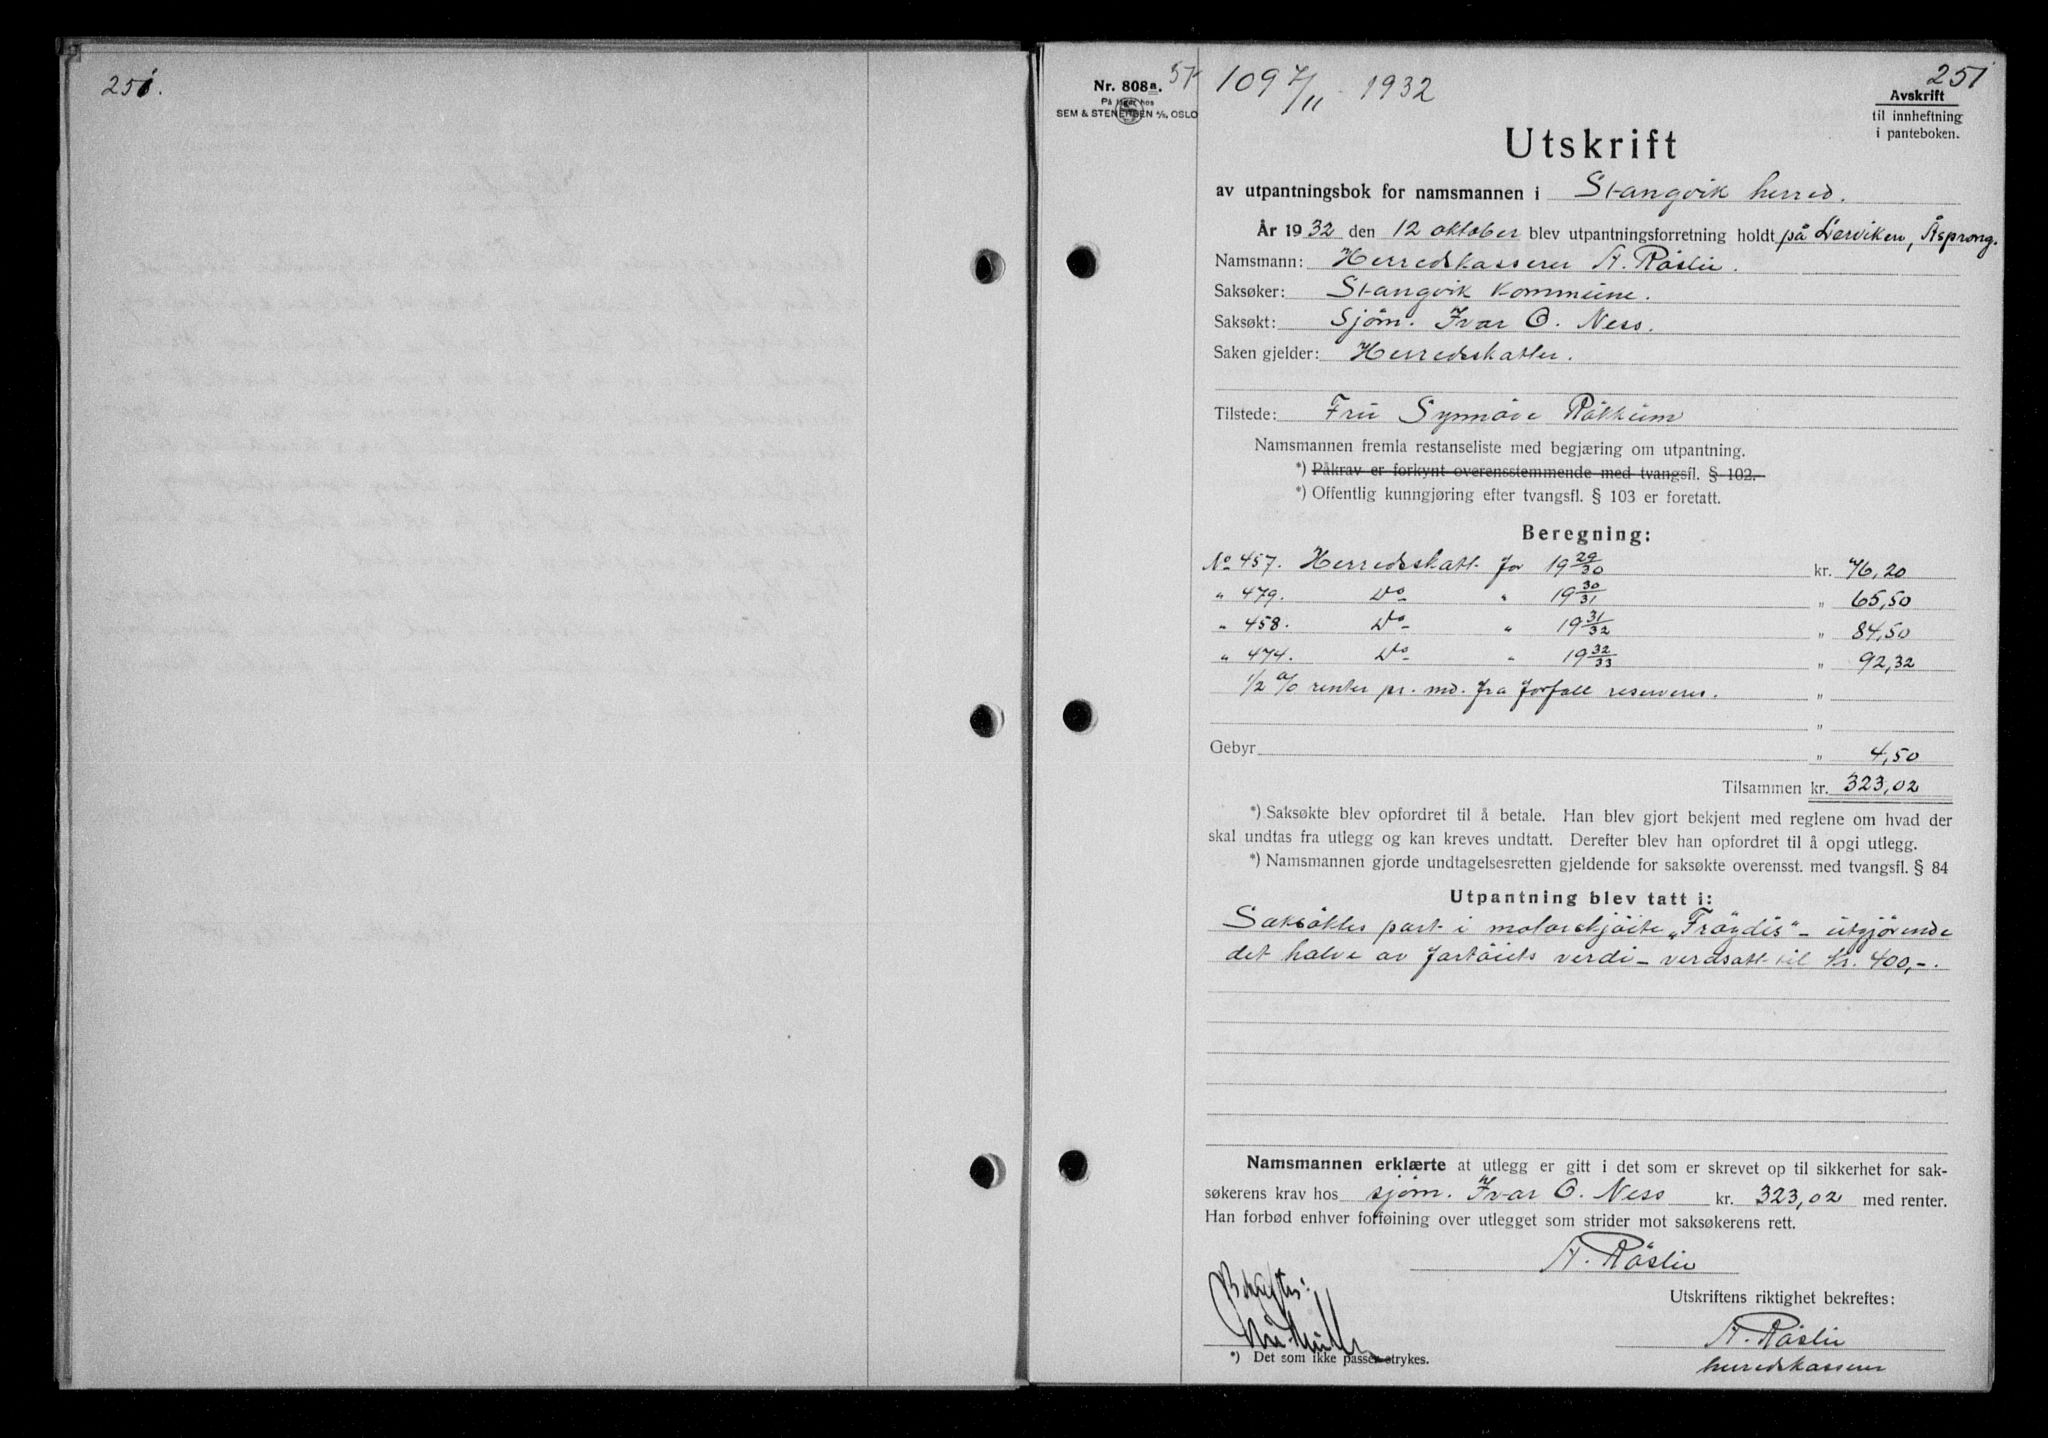 251.
Nr. 808a.
På lager hos
SEM & STENERSEN A/S, OSLO
57
1097/11 - 1932
251
Avskrift
til innheftning
i panteboken.
Utskrift
av utpantningsbok for namsmannen i Stangvik herred.
År 1932 den 12 oktober blev utpantningsforretning holdt på Lerviken, Åsprong.
Namsmann: Herredskasserer A. Röslie.
Saksøker: Stangvik Kommune.
Saksøkt: Sjöm. Ivar O. Ness.
Saken gjelder: Herredskatter.
Tilstede: Fru Synnöve Rökkum
Namsmannen fremla restanseliste med begjæring om utpantning.
*) Påkrav er forkynt overensstemmende med tvangsfl. § 102.
*) Offentlig kunngjøring efter tvangsfl. § 103 er foretatt.
Beregning:
No 457. Herredskatt for 19 29/30 kr. 76,20
" 479. Do " 19 30/31 " 65,50
" 458. Do " 19 31/32 " 84,50
" 474. Do " 19 32/33 " 92,32
1/2 % renter pr. md. fra forfall reserveres. "
"
Gebyr " 4,50
Tilsammen kr. 323,02
*) Saksøkte blev opfordret til å betale. Han blev gjort bekjent med reglene om hvad der
skal undtas fra utlegg og kan kreves undtatt. Derefter blev han opfordret til å opgi utlegg.
*) Namsmannen gjorde undtagelsesretten gjeldende for saksøkte overensst. med tvangsfl. § 84
Utpantning blev tatt i:
Saksöktes part i motorskjöite „Fröydis" - utgjörende
det halve av fartöiets verdi - verdsatt til kr. 400,-.
Namsmannen erklærte at utlegg er gitt i det som er skrevet op til sikkerhet for sak-
søkerens krav hos sjöm. Ivar O. Ness kr. 323,02 med renter.
Han forbød enhver forføining over utlegget som strider mot saksøkerens rett.
A. Röslie
Bekreftes:
Utskriftens riktighet bekreftes:
A. Röslie
herredskasserer
*) Det som ikke passer strykes.